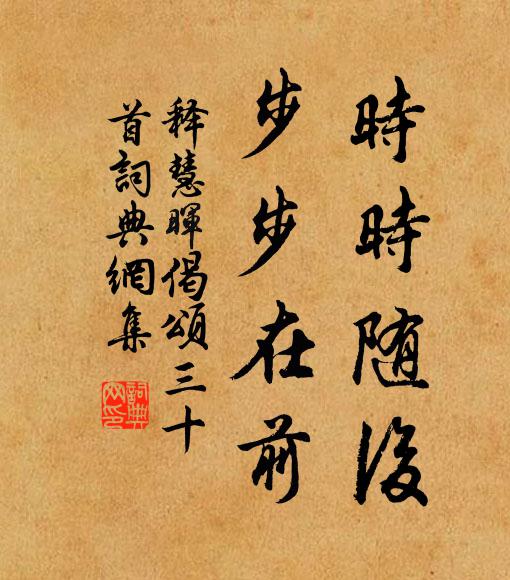 時時随後
步步在前
释慧暉偈頌三十
首詞典網集
詞典
网印